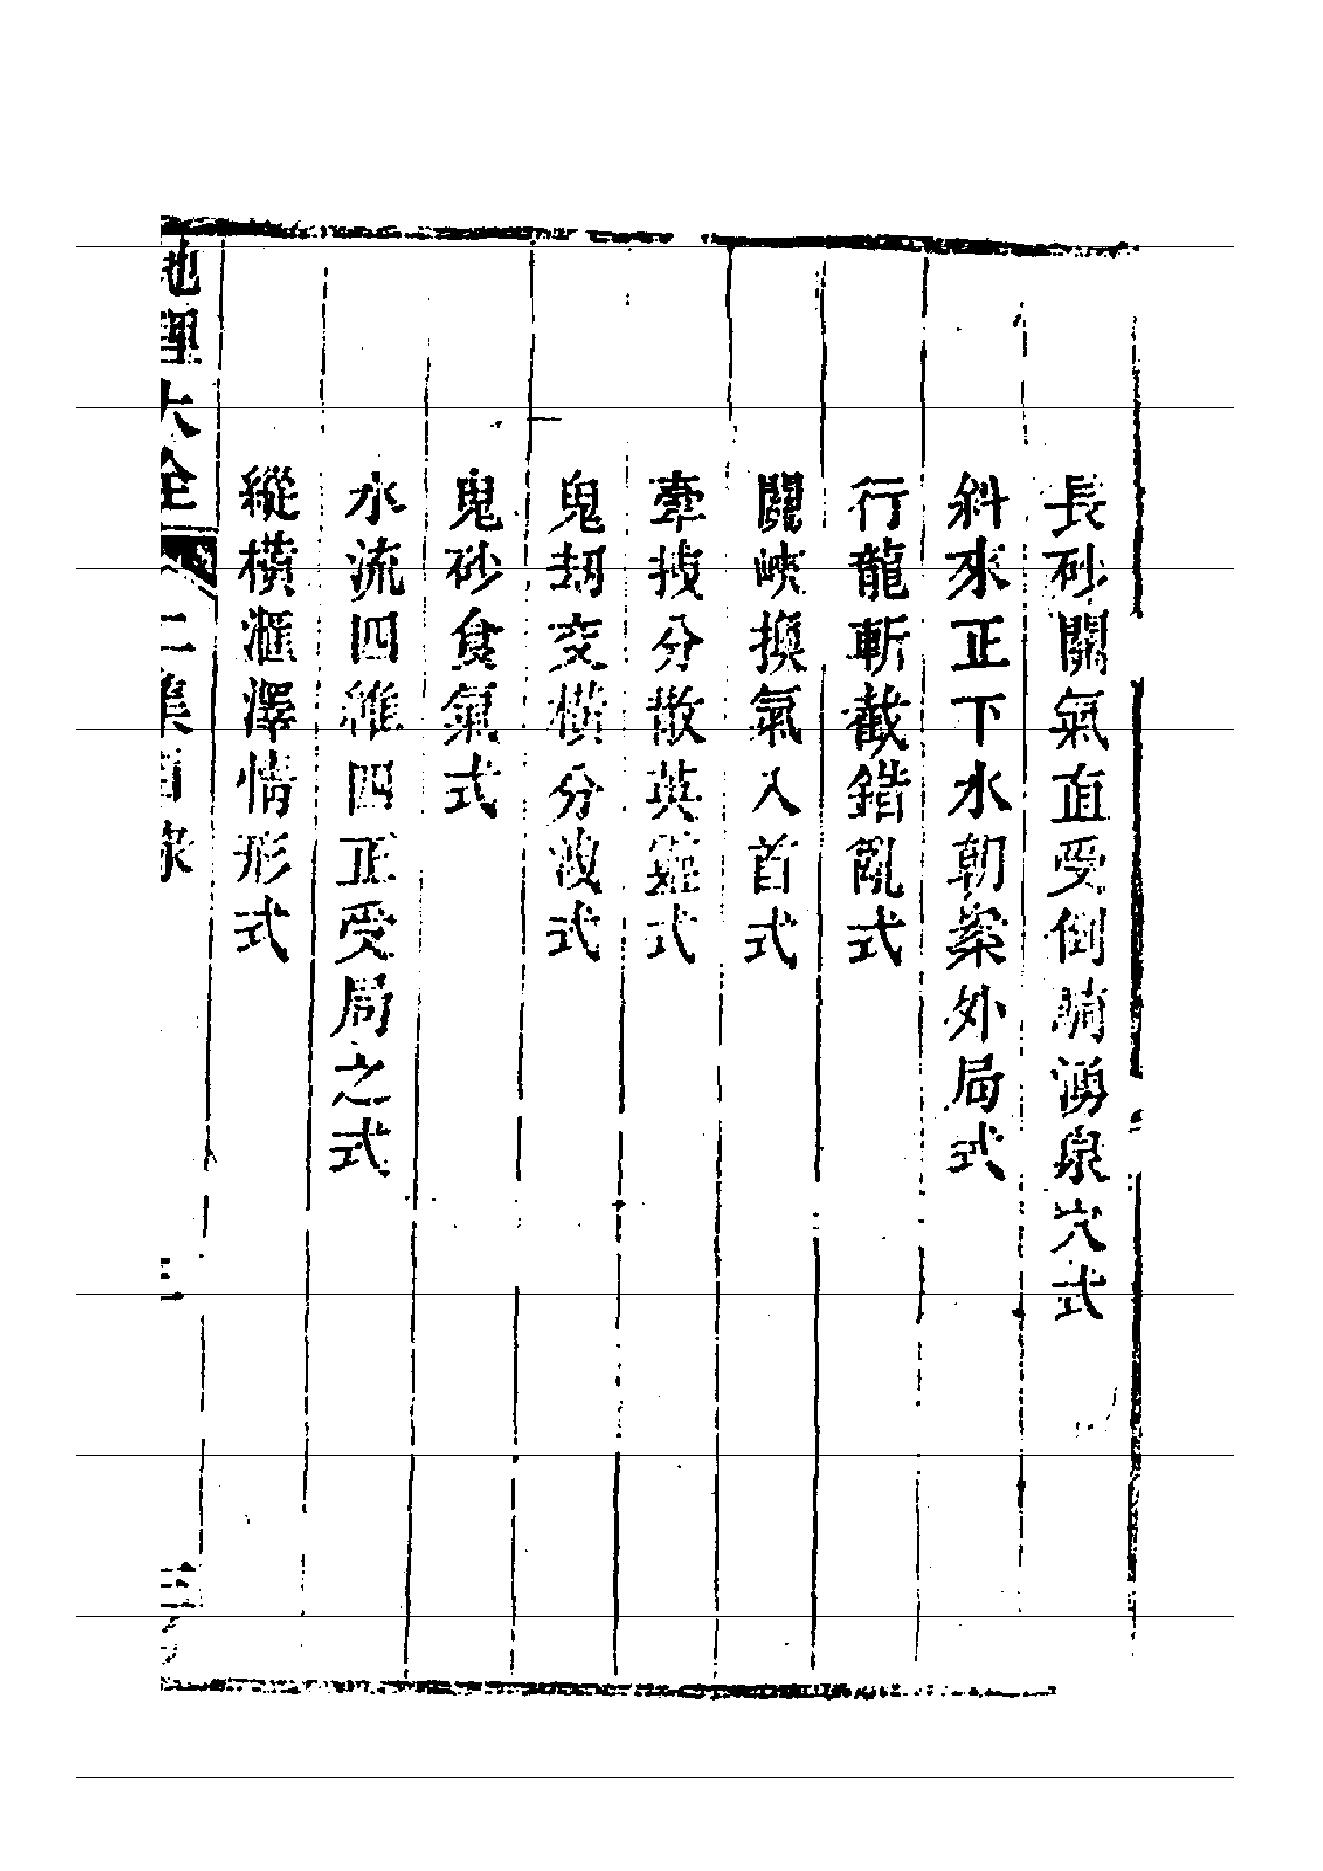 長砂關氣直受倒騎湧泉穴式
斜來正下水朝案外局式
行龍斬截錯亂式
關峽換氣入首式
牽拽分散英䨥式
鬼刼交橫分波式
鬼砂食氣式
水流四維四正受局之式
縱橫滙澤情形式
地理大全 二集目錄 三